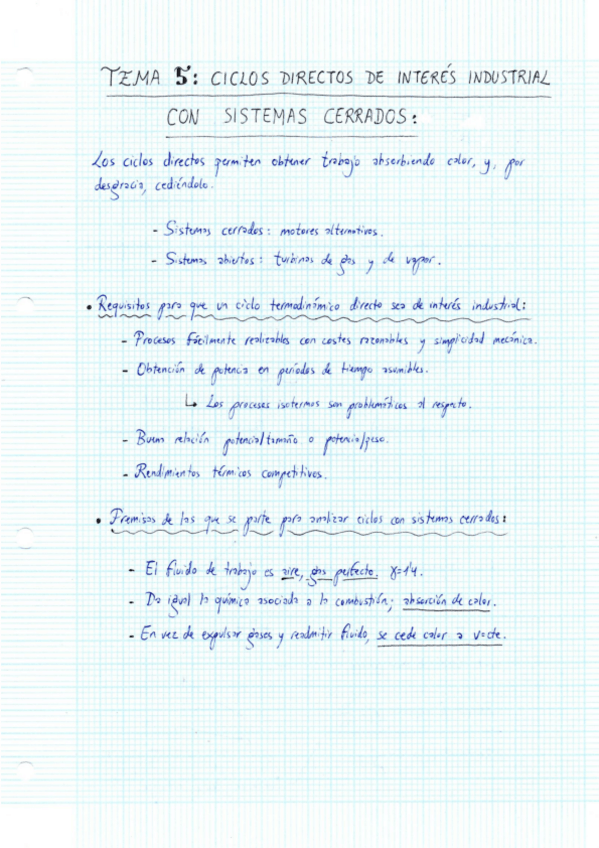 TEMA 5: CICLOS DIRECTOS DE INTERÉS INDUSTRIAL
CON SISTEMAS CERRADOS:
Los ciclos directos permiten obtener trabajo absorbiendo calor, y, por
desgracia, cediéndolo.
- Sistemas cerrados: motores alternativos.
- Sistemas abiertos: turbinas de gas y de vapor.
• Requisitos para que un ciclo termodinámico directo sea de interés industrial:
- Procesos fácilmente realizables con costes razonables y simplicidad mecánica.
- Obtención de potencia en períodos de tiempo asumibles.
↳ Los procesos isotermos son problemáticos al respecto.
- Buena relación potencia/tamaño o potencia/peso.
- Rendimientos térmicos competitivos.
• Premisas de las que se parte para analizar ciclos con sistemas cerrados:
- El fluido de trabajo es aire, gas perfecto. γ=1'4.
- Da igual la química asociada a la combustión; absorción de calor.
- En vez de expulsar gases y readmitir fluido, se cede calor a v=cte.